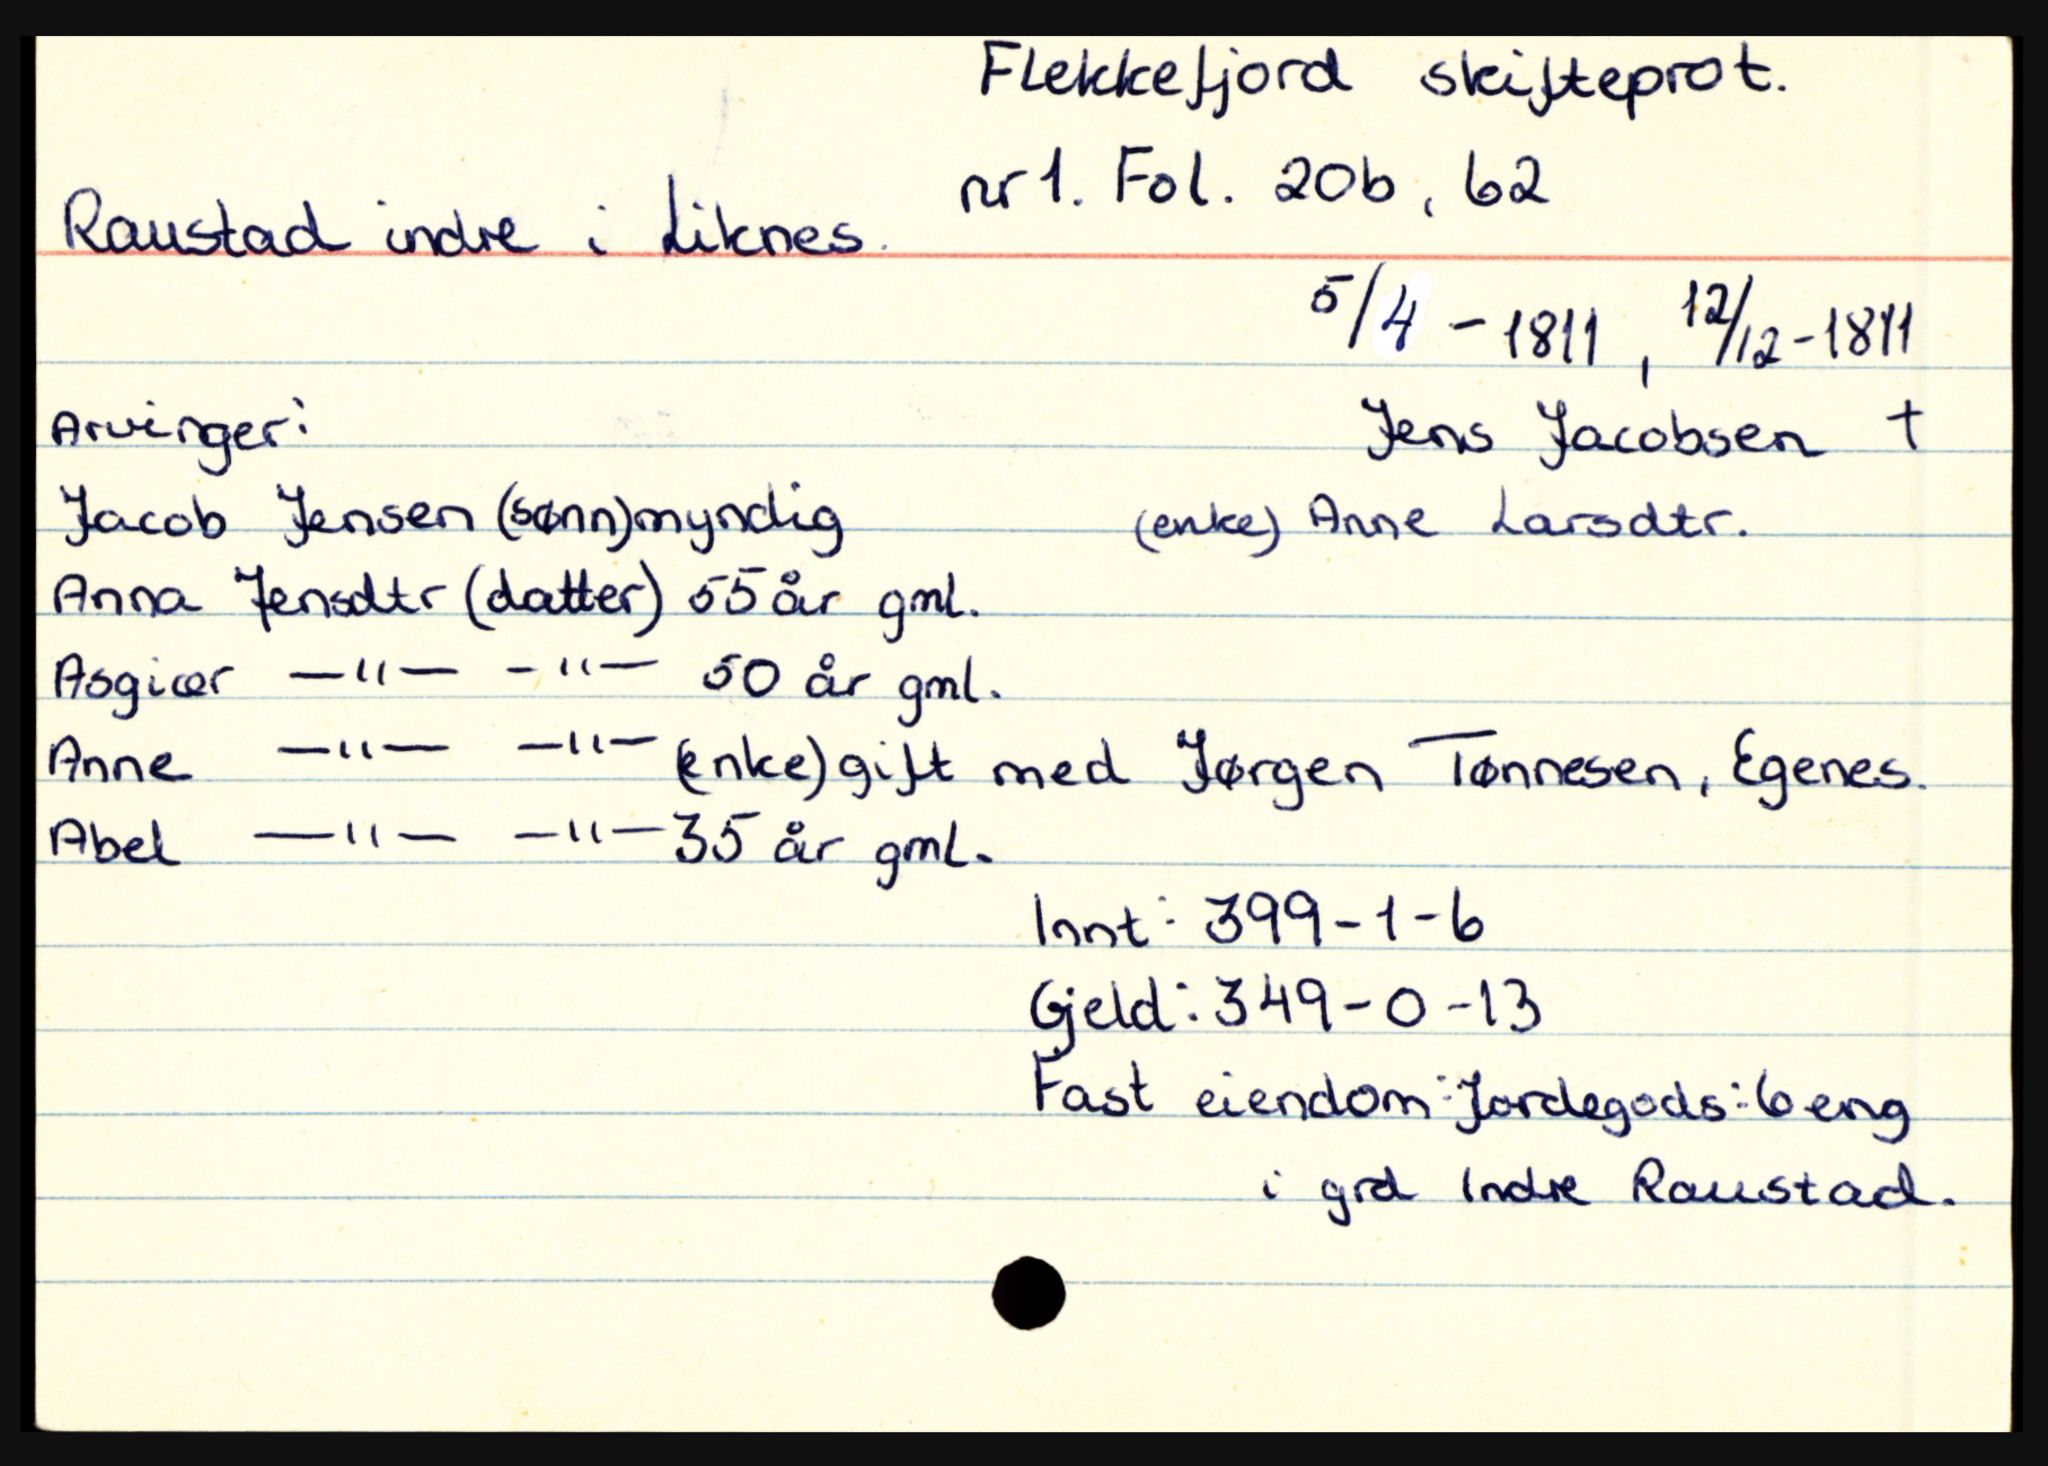 Flekkefjord skifteprot.
nr 1. Fol. 20b, 62
Raustad indre i Liknes.
5/4 - 1811, 12/12 - 1811
Arvinger:
Jens Jacobsen †
Jacob Jensen (sønn) myndig
(enke) Anne Larsdtr.
Anna Jensdtr (datter) 55 år gml.
Asgicer —"— —"— 50 år gml.
Anne —"— —"— (enke) gift med Jørgen Tønnesen, Egenes.
Abel —"— —"— 35 år gml.
Innt: 399-1-6
Gjeld: 349-0-13
Fast eiendom: Jordegods: 6 eng
i grd Indre Raustad.